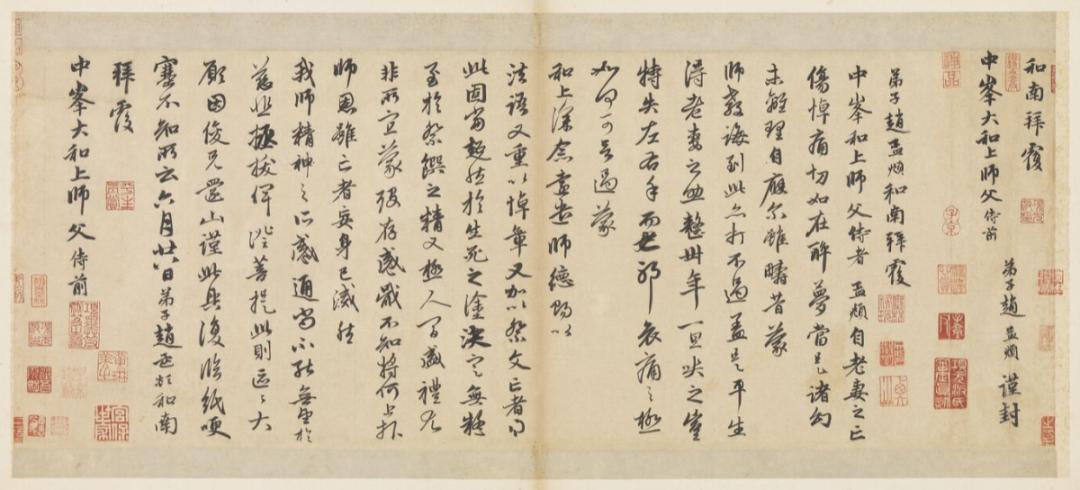 和南拜覆
中峯大和上師父侍前
弟子趙孟頫 謹封
弟子趙孟頫和南拜覆
中峯和上師父侍者 孟頫自老妻之亡
傷悼痛切如在醉夢當是諸幻
未離理自應尓雖疇昔蒙
師教誨到此亦打不過蓋是平生
得老妻之助整卅年一旦喪之豈
特失左右手而已耶哀痛之極
如何可言過蒙
和上深念遠遣師德賜以
法語又重以悼章又加以祭文亡者得
此固當超然於生死之塗決定無疑
至於祭饌之精又極人間盛禮尤
非所宜蒙歿存感戴不知將何上報
師恩雖亡者妄身已滅然
我師精神之所感通尚不能無望於
慈悲拯拔俾證菩提此則區區大
願因俊兄還山謹此具復臨紙哽
塞不知所云六月廿八日弟子趙孟頫和南
拜覆
中峯大和上師父侍前